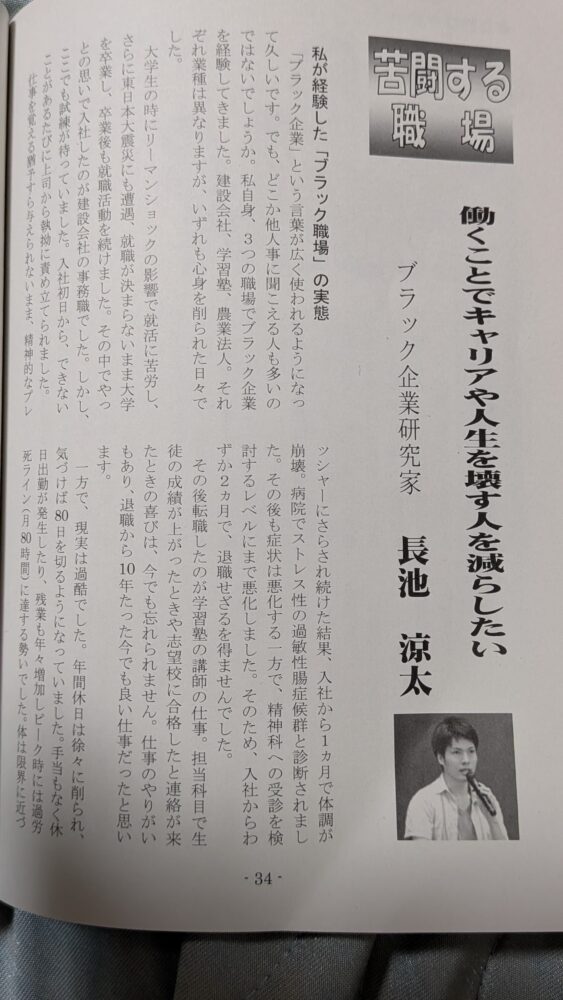 苦闘する
職場
働くことでキャリアや人生を壊す人を減らしたい
ブラック企業研究家 長池 涼太
私が経験した「ブラック職場」の実態
「ブラック企業」という言葉が広く使われるようになっ
て久しいです。でも、どこか他人事に聞こえる人も多いの
ではないでしょうか。私自身、３つの職場でブラック企業
を経験してきました。建設会社、学習塾、農業法人。それ
ぞれ業種は異なりますが、いずれも心身を削られた日々で
した。
大学生の時にリーマンショックの影響で就活に苦労し、
さらに東日本大震災にも遭遇、就職が決まらないまま大学
を卒業し、卒業後も就職活動を続けました。その中でやっ
との思いで入社したのが建設会社の事務職でした。しかし、
ここでも試練が待っていました。入社初日から、できない
ことがあるたびに上司から執拗に責め立てられました。
仕事を覚える猶予すら与えられないまま、精神的なプレ
ッシャーにさらされ続けた結果、入社から１ヵ月で体調が
崩壊。病院でストレス性の過敏性腸症候群と診断されまし
た。その後も症状は悪化する一方で、精神科への受診を検
討するレベルにまで悪化しました。そのため、入社からわ
ずか２ヵ月で、退職せざるを得ませんでした。
その後転職したのが学習塾の講師の仕事。担当科目で生
徒の成績が上がったときや志望校に合格したと連絡が来
たときの喜びは、今でも忘れられません。仕事のやりがい
もあり、退職から10年たった今でも良い仕事だったと思い
ます。
一方で、現実は過酷でした。年間休日は徐々に削られ、
気づけば80日を切るようになっていました。手当もなく休
日出勤が発生したり、残業も年々増加しピーク時には過労
死ライン（月80時間）に達する勢いでした。体は限界に近づ
- 34 -